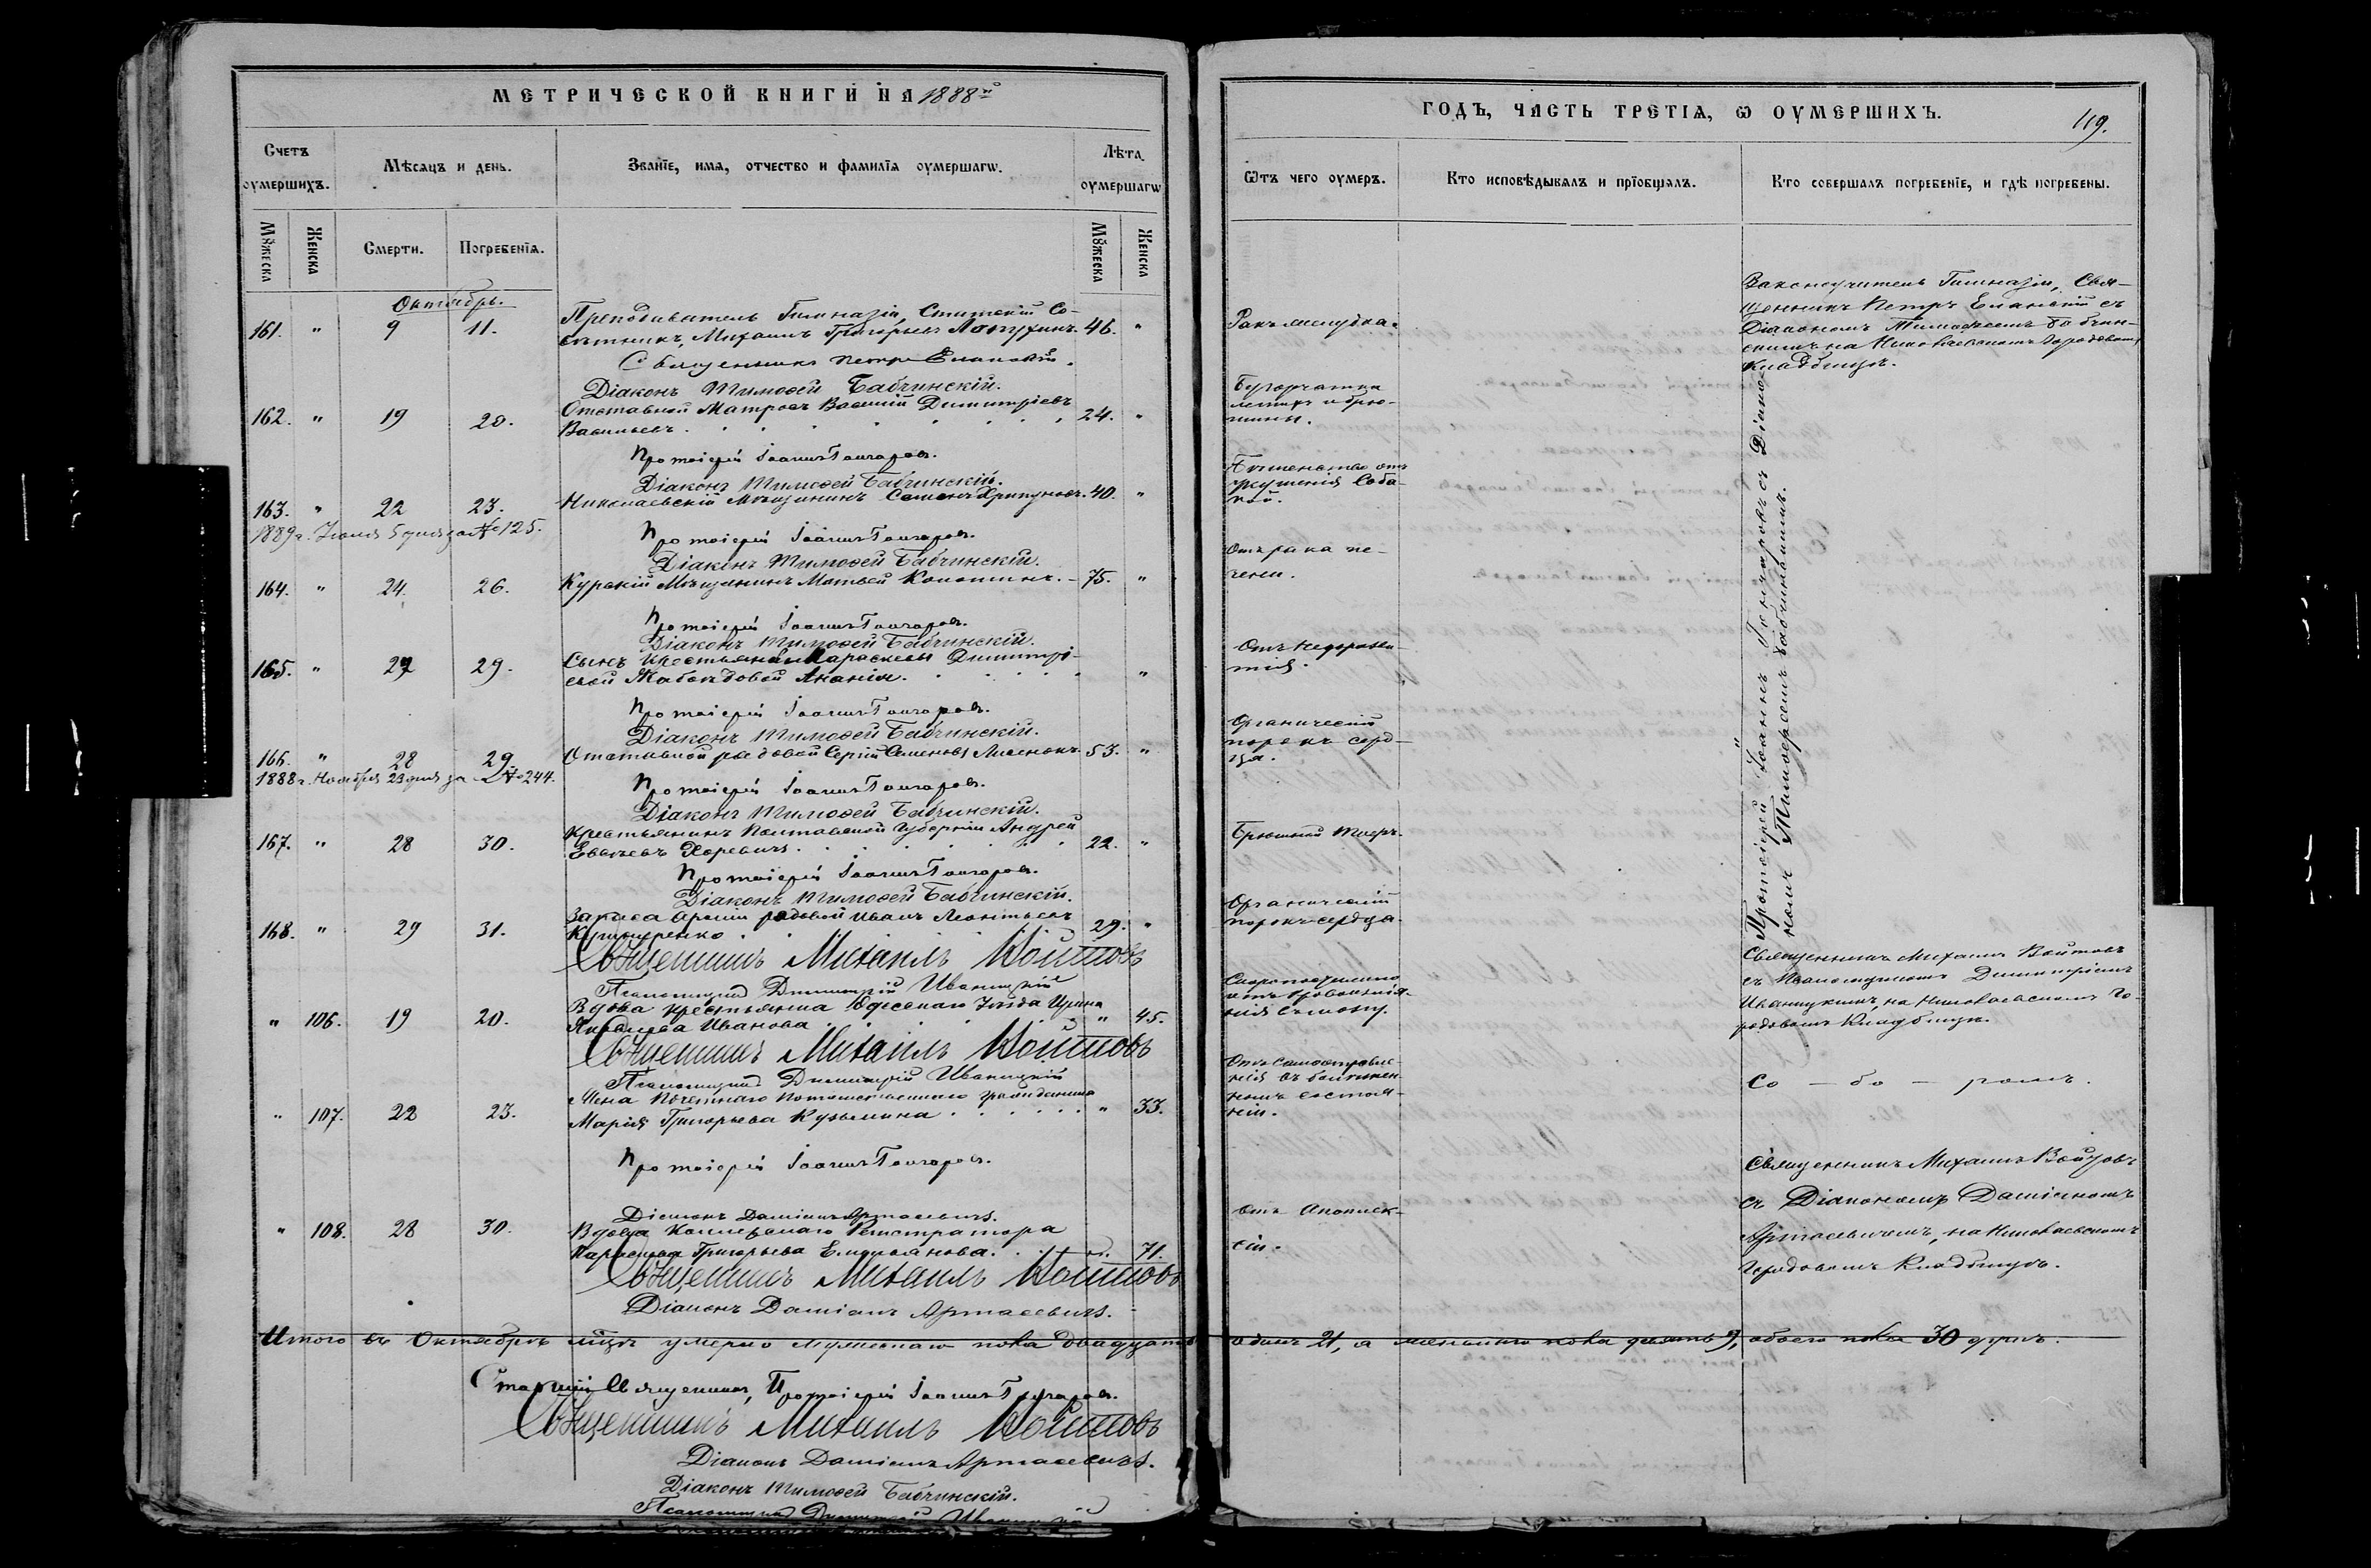 МЕТРИЧЕСКОЙ КНИГИ НА 1888й
Счетъ оумершихъ.
Мѣсяцъ и день.
Званіе, имя, отчество и фамилія оумершагѡ.
Лѣта оумершагѡ
Мꙋжеска
Женска
Смерти.
Погребенїя.
Мꙋжеска
Женска
Октябрь.
161. " 9 11. Преподаватель Гимназіи, Статскій Со-
вѣтникъ, Михаилъ Григорьевъ Лопухинъ. 46. "
Священникъ Петръ Еланскій.
Діаконъ Тимоѳей Бабчинскій.
162. " 19 20. Отставной Матросъ Василій Димитріевъ
Васильевъ. 24. "
Протоіерей Іоаннъ Гончаровъ.
Діаконъ Тимоѳей Бабчинскій.
163. " 22 23. Николаевскій Мѣщанинъ Семенъ Хрипуновъ. 40. "
1889г. Іюля 5 дня за № 125.
Протоіерей Іоаннъ Гончаровъ.
Діаконъ Тимоѳей Бабчинскій.
164. " 24. 26. Курскій Мѣщанинъ Матвей Конотинъ. 75. "
Протоіерей Іоаннъ Гончаровъ.
Діаконъ Тимоѳей Бабчинскій.
165. " 27 29. Сынъ Крестьянки Параскевы Димитрі-
евой Ананія. "
Протоіерей Іоаннъ Гончаровъ.
Діаконъ Тимоѳей Бабчинскій.
166. " 28 29. Отставной рядовой Сергій Семеновъ 53. "
1888г. Ноября 23 дня за № 244.
Протоіерей Іоаннъ Гончаровъ.
Діаконъ Тимоѳей Бабчинскій.
167. " 28 30. Крестьянинъ Полтавской Губерніи Андрей
22. "
Протоіерей Іоаннъ Гончаровъ.
Діаконъ Тимоѳей Бабчинскій.
168. " 29 31. Запаса Арміи рядовой Иванъ Леонтьевъ
29. "
Священникъ Михаилъ Войтовъ
Псаломщикъ Димитрій Иваницкій
" 106. 19 20. Вдова крестьянина Одесскаго Уѣзда Ирина
Иванова " 45.
Священникъ Михаилъ Войтовъ
Псаломщикъ Димитрій Иваницкій
" 107. 22 23. Жена Почетнаго Потомственнаго гражданина
Марія Григорьева Кузьмина " 33.
Протоіерей Іоаннъ Гончаровъ.
Діаконъ Даміанъ Артасевичъ.
" 108. 28 30. Вдова Коллежскаго Регистратора
Параскева Григорьева Емельянова. " 71.
Священникъ Михаилъ Войтовъ
Діаконъ Даміанъ Артасевичъ.
Итого въ Октябрѣ мцѣ умерло мужескаго пола двадцать
Старшій Священникъ, Протоіерей Іоаннъ Гончаровъ.
Священникъ Михаилъ Войтовъ
Діаконъ Даміанъ Артасевичъ.
Діаконъ Тимоѳей Бабчинскій.
Псаломщикъ Димитрій Иваницкій
ГОДЪ, ЧАСТЬ ТРЕТІѦ, Ѡ ОУМЕРШИХЪ.
119.
Ѿтъ чего оумеръ.
Кто исповѣдывалъ и прїобщалъ.
Кто совершалъ погребенїе, и гдѣ погребены.
Ракъ желудка.
Законоучитель Гимназіи, Свя-
щенникъ Петръ Еланскій съ
Діакономъ Тимоѳеемъ Бабчин-
скимъ на Николаевскомъ Городовомъ
Кладбищѣ.
Бугорчатка
легкихъ и брю-
шины.
Бѣшенство отъ
укушенія Соба-
кой.
Отъ рака пе-
чени.
Отъ недоразви-
тія.
Органическій
порокъ серд-
ца.
Брюшной тифъ.
Органическій
порокъ сердца.
Протоіерей Іоаннъ Гончаровъ съ Діако-
номъ Тимоѳеемъ Бабчинскимъ.
Скоропостижно
отъ кровоизлія-
нія въ мозгу.
Священникъ Михаилъ Войтовъ
съ Псаломщикомъ Димитріемъ
Иваницкимъ, на Николаевскомъ Го-
родовомъ Кладбищѣ.
Отъ самоотравле-
нія въ болѣзнен-
номъ состоя-
ніи.
Со — бо — ромъ.
Отъ Апоплек-
сіи.
Священникъ Михаилъ Войтовъ
съ Діакономъ Даміаномъ
Артасевичемъ, на Николаевскомъ
Городовомъ Кладбищѣ.
одинъ 21, а женскаго пола девять 9, обоего пола 30 душъ.